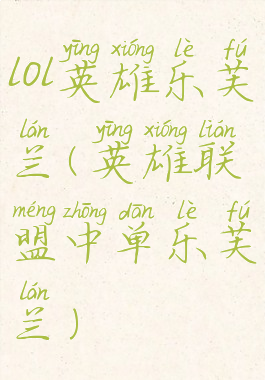 yīng xióng lè fú
lol英雄乐芙
lán yīng xióng lián
兰(英雄联
méng zhōng dān lè fú
盟中单乐芙
lán
兰)